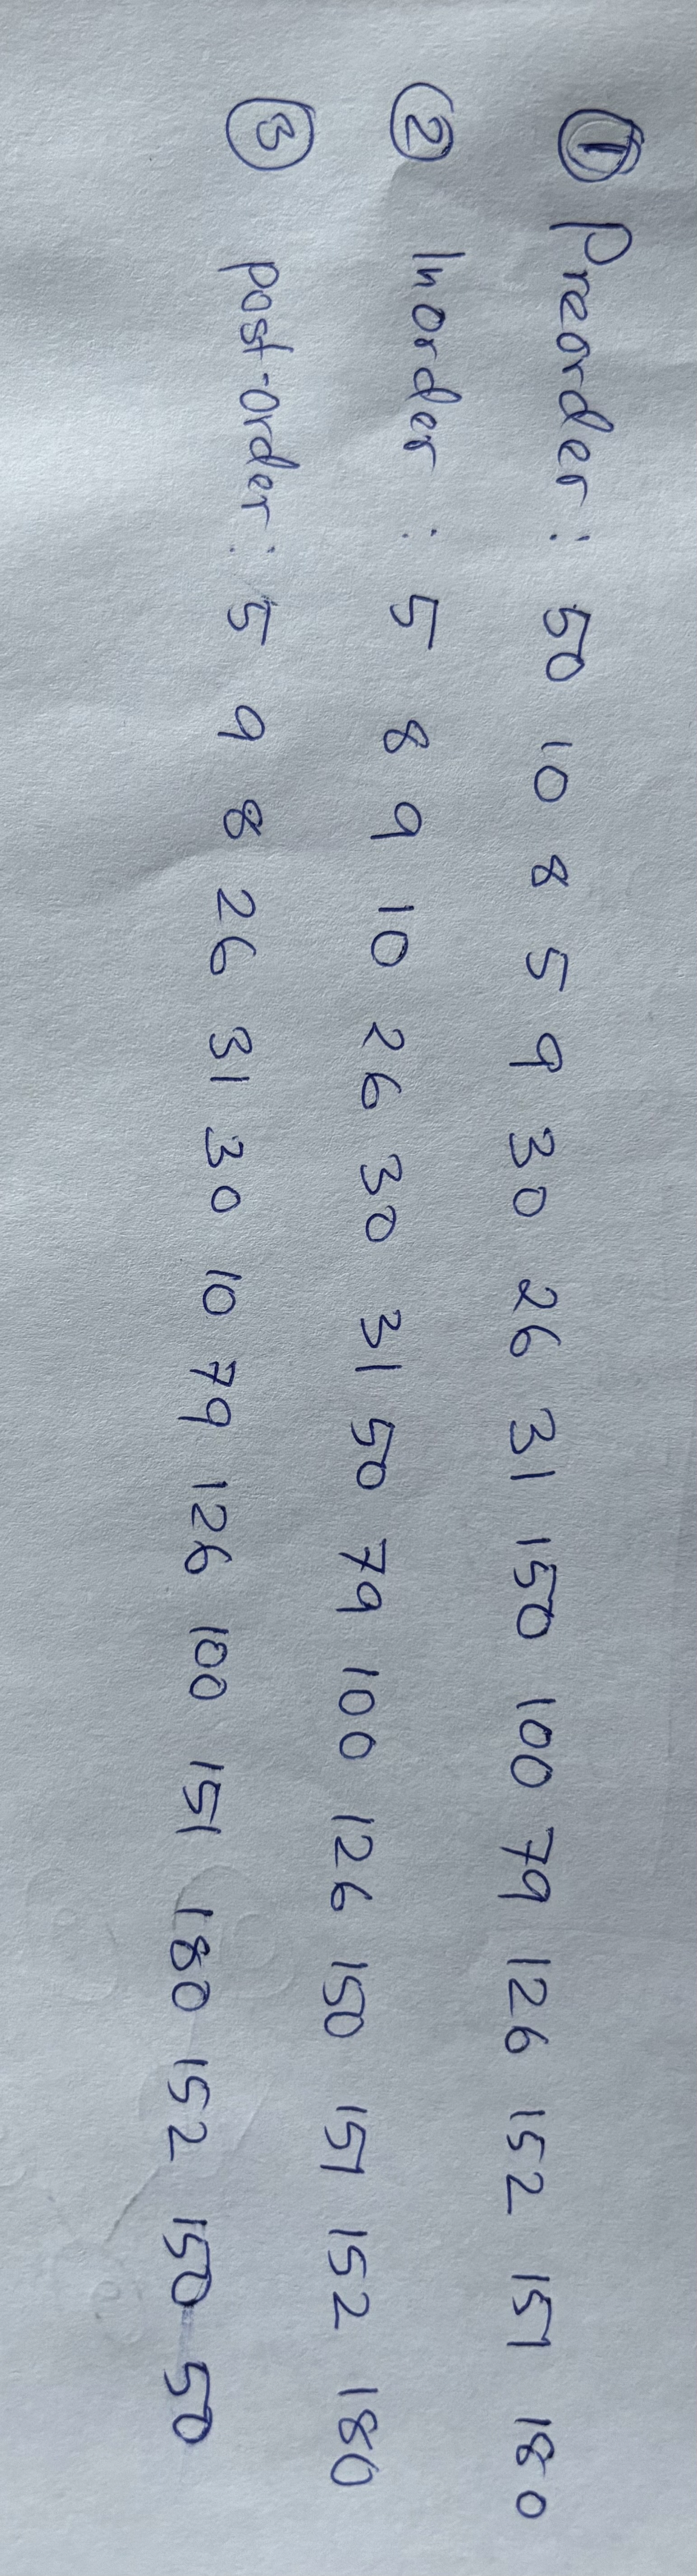 ① Preorder: 50 10 8 5 9 30 26 31 150 100 79 126 152 151 180
② Inorder : 5 8 9 10 26 30 31 50 79 100 126 150 151 152 180
③ post-order: 5 9 8 26 31 30 10 79 126 100 151 180 152 150 50